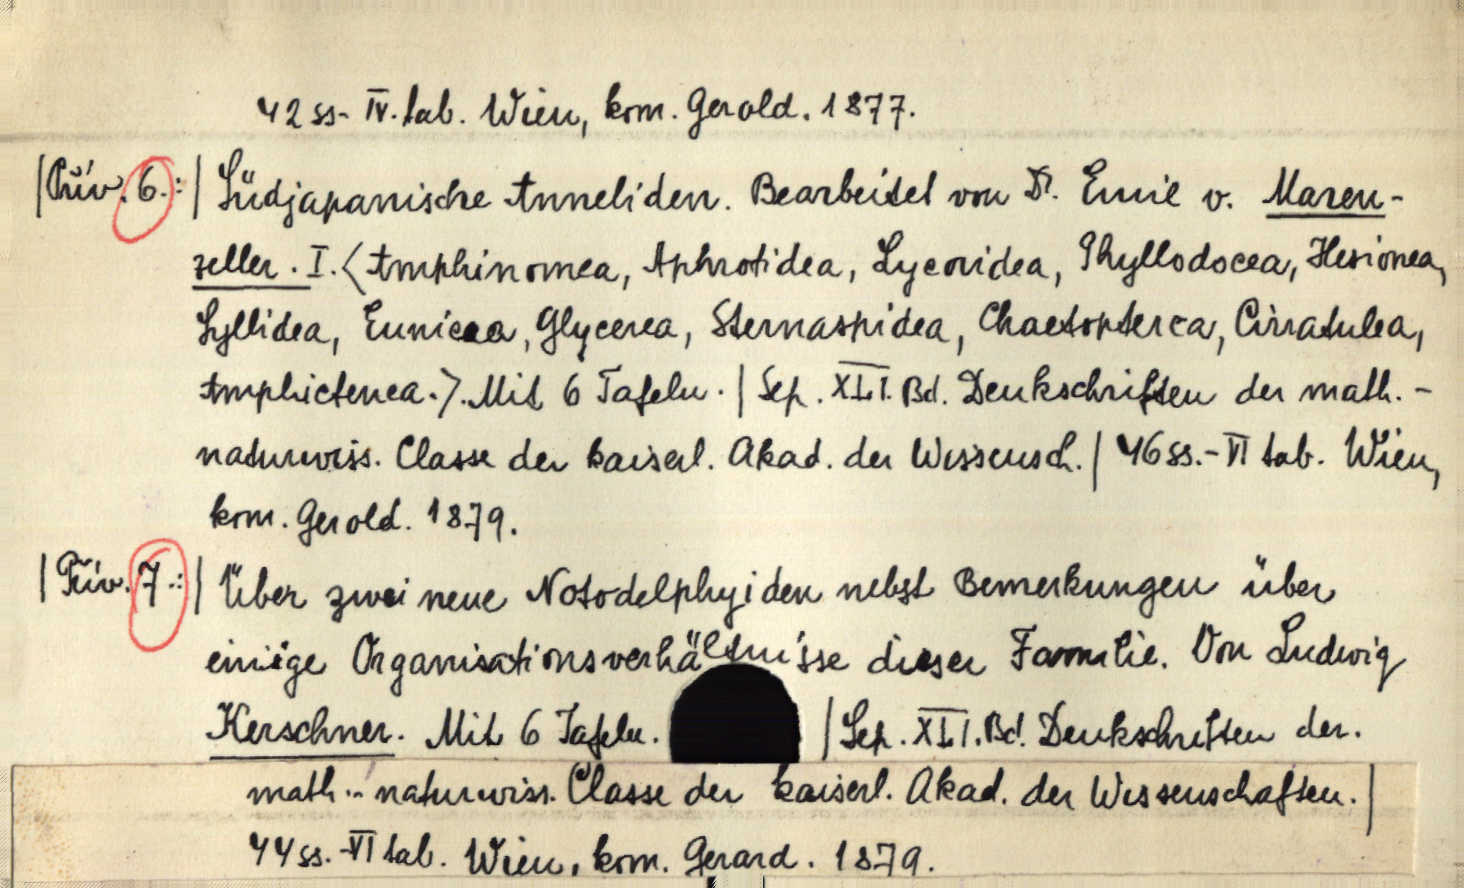 42 ss- IV. tab. Wien, kom. Gerold. 1877.
|Přív. 6.:| Südjapanische Anneliden. Bearbeitet von Dr. Emil v. Maren-
zeller. I. <Amphinomea, Aphrotidea, Lycoridea, Phyllodocea, Hesionea,
Syllidea, Eunicea, Glycerea, Sternaspidea, Chaetopterea, Cirratulea,
Amphictenea.>. Mit 6 Tafeln. | Sep. XLI. Bd. Denkschriften der math.-
naturwiss. Classe der kaiserl. Akad. der Wissensch. | 46 ss.- VI tab. Wien,
kom. Gerold. 1879.
| Přív. 7.:| Über zwei neue Notodelphyiden nebst Bemerkungen über
einige Organisationsverhältnisse dieser Familie. Von Ludwig
Kerschner. Mit 6 Tafeln. | Sep. XLI. Bd. Denkschriften der.
math.- naturwiss. Classe der kaiserl. Akad. der Wissenschaften. |
44 ss.- VI tab. Wien, kom. Gerard. 1879.